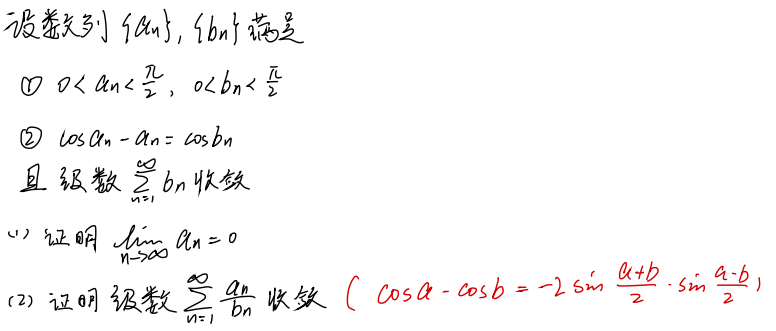 设数列{an}, {bn}满足
① 0 < an < π/2, 0 < bn < π/2
② cos an - an = cos bn
且级数 ∑_{n=1}^{∞} bn 收敛
(1) 证明 lim_{n→∞} an = 0
(2) 证明级数 ∑_{n=1}^{∞} an/bn 收敛 ( cos a - cos b = -2 sin (a+b)/2 · sin (a-b)/2 )